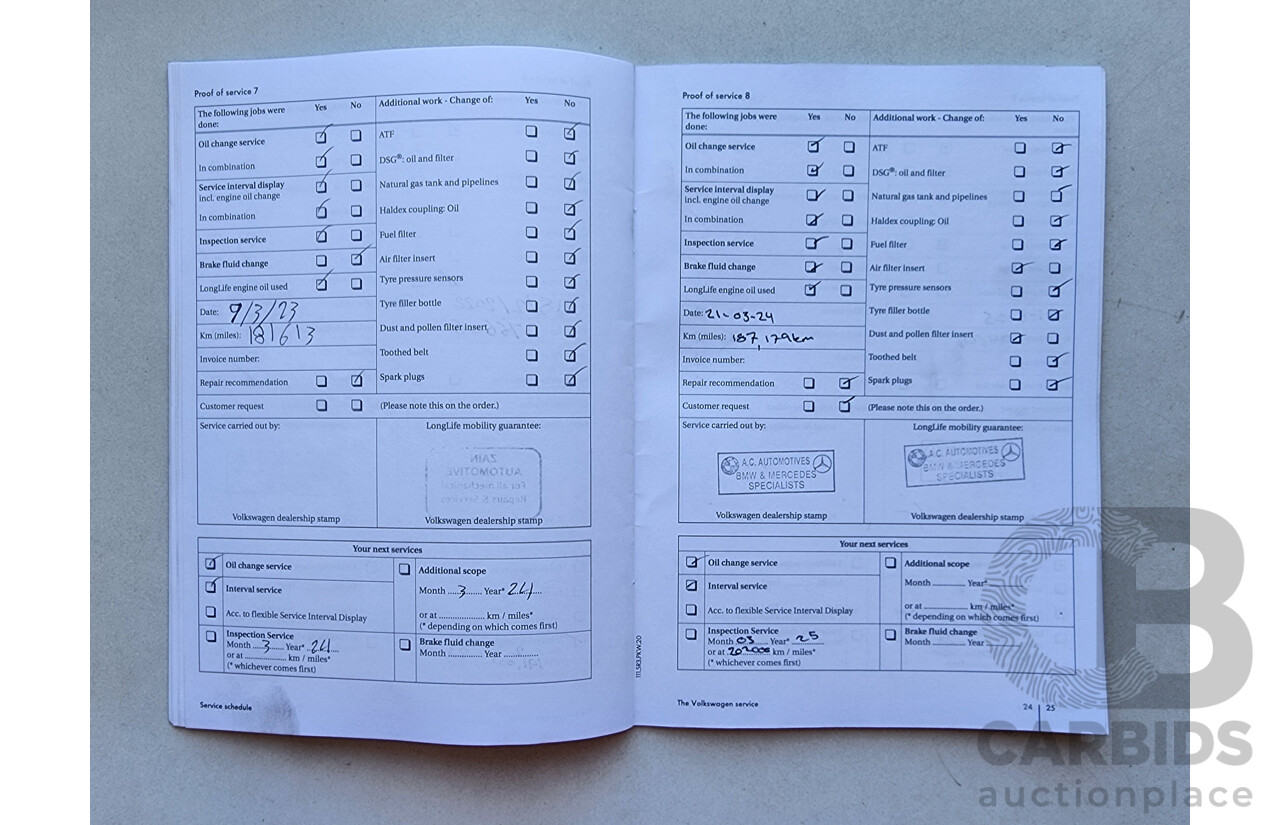 Proof of service 7
The following jobs were done: Yes No
Oil change service
In combination
Service interval display
incl. engine oil change
In combination
Inspection service
Brake fluid change
LongLife engine oil used
Date: 9/3/23
Km (miles): 181613
Invoice number:
Repair recommendation
Customer request
Additional work - Change of: Yes No
ATF
DSG®: oil and filter
Natural gas tank and pipelines
Haldex coupling: Oil
Fuel filter
Air filter insert
Tyre pressure sensors
Tyre filler bottle
Dust and pollen filter insert
Toothed belt
Spark plugs
(Please note this on the order.)
Service carried out by:
Volkswagen dealership stamp
LongLife mobility guarantee:
ZAIN
AUTOMOTIVE
For all mechanical
Repairs & Services
Volkswagen dealership stamp
Your next services
Oil change service
Interval service
Acc. to flexible Service Interval Display
Inspection Service
Month ....3...... Year* ..24....
or at .................. km / miles*
(* whichever comes first)
Additional scope
Month ....3...... Year* .24....
or at .................. km / miles*
(* depending on which comes first)
Brake fluid change
Month .............. Year ..............
Service schedule
111.5R3.PKW.20
Proof of service 8
The following jobs were done: Yes No
Oil change service
In combination
Service interval display
incl. engine oil change
In combination
Inspection service
Brake fluid change
LongLife engine oil used
Date: 21-03-24
Km (miles): 187,179km
Invoice number:
Repair recommendation
Customer request
Additional work - Change of: Yes No
ATF
DSG®: oil and filter
Natural gas tank and pipelines
Haldex coupling: Oil
Fuel filter
Air filter insert
Tyre pressure sensors
Tyre filler bottle
Dust and pollen filter insert
Toothed belt
Spark plugs
(Please note this on the order.)
Service carried out by:
A.C. AUTOMOTIVES
BMW & MERCEDES
SPECIALISTS
Volkswagen dealership stamp
LongLife mobility guarantee:
A.C. AUTOMOTIVES
BMW & MERCEDES
SPECIALISTS
Volkswagen dealership stamp
Your next services
Oil change service
Interval service
Acc. to flexible Service Interval Display
Inspection Service
Month 03 Year* 25
or at 202000 km / miles*
(* whichever comes first)
Additional scope
Month .............. Year* ..............
or at .................. km / miles*
(* depending on which comes first)
Brake fluid change
Month .............. Year ..............
The Volkswagen service
24 | 25
CARBIDS
auctionplace